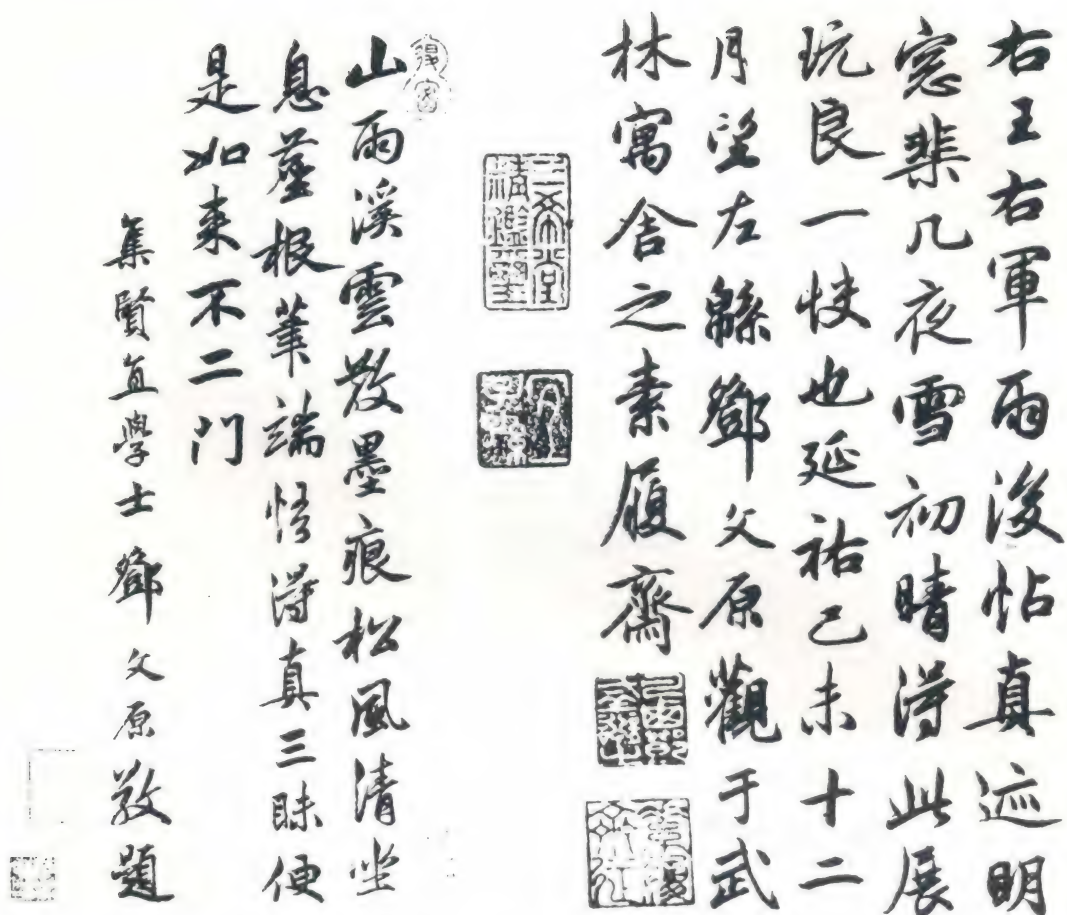 右王右軍雨後帖真迹明
窓棐几夜雪初晴得此展
玩良一快也延祐己未十二
月望左緜鄧文原觀于武
林寓舍之素履齋
三希堂
精鑑璽
山雨溪雲散墨痕松風清坐
息塵根筆端悟得真三昧便
是如来不二門
集賢直學士鄧文原敬題